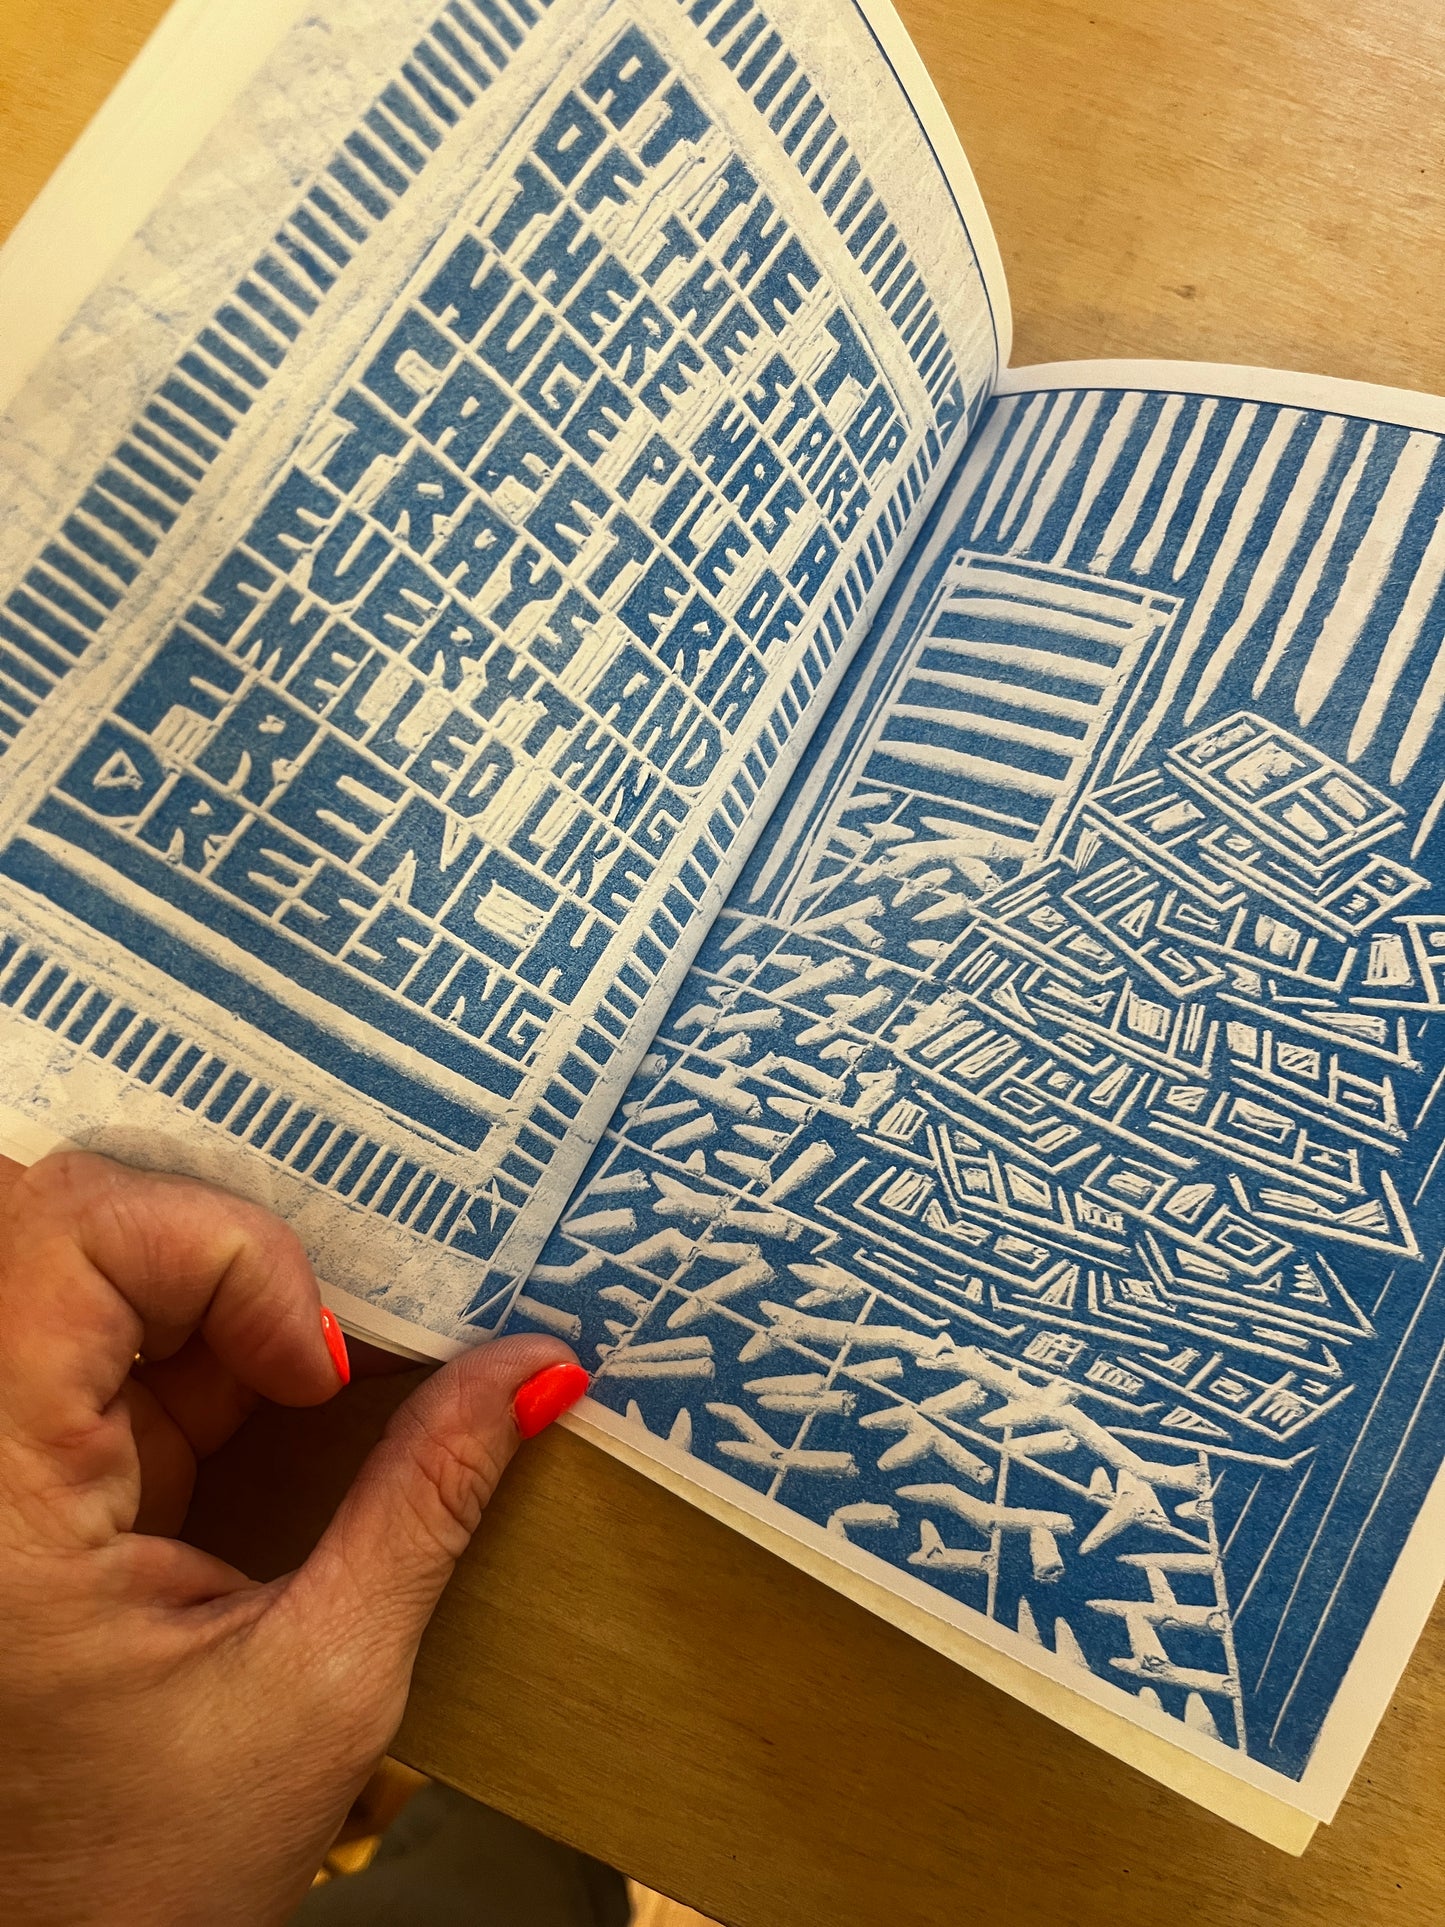 AT THE TOP
OF THE STAIRS
THERE WAS A
HUGE PILE OF
CAFETERIA
TRAYS AND
EVERYTHING
SMELLED LIKE
FRENCH
DRESSING